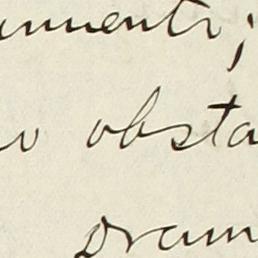 umenti;
o obsta
dram